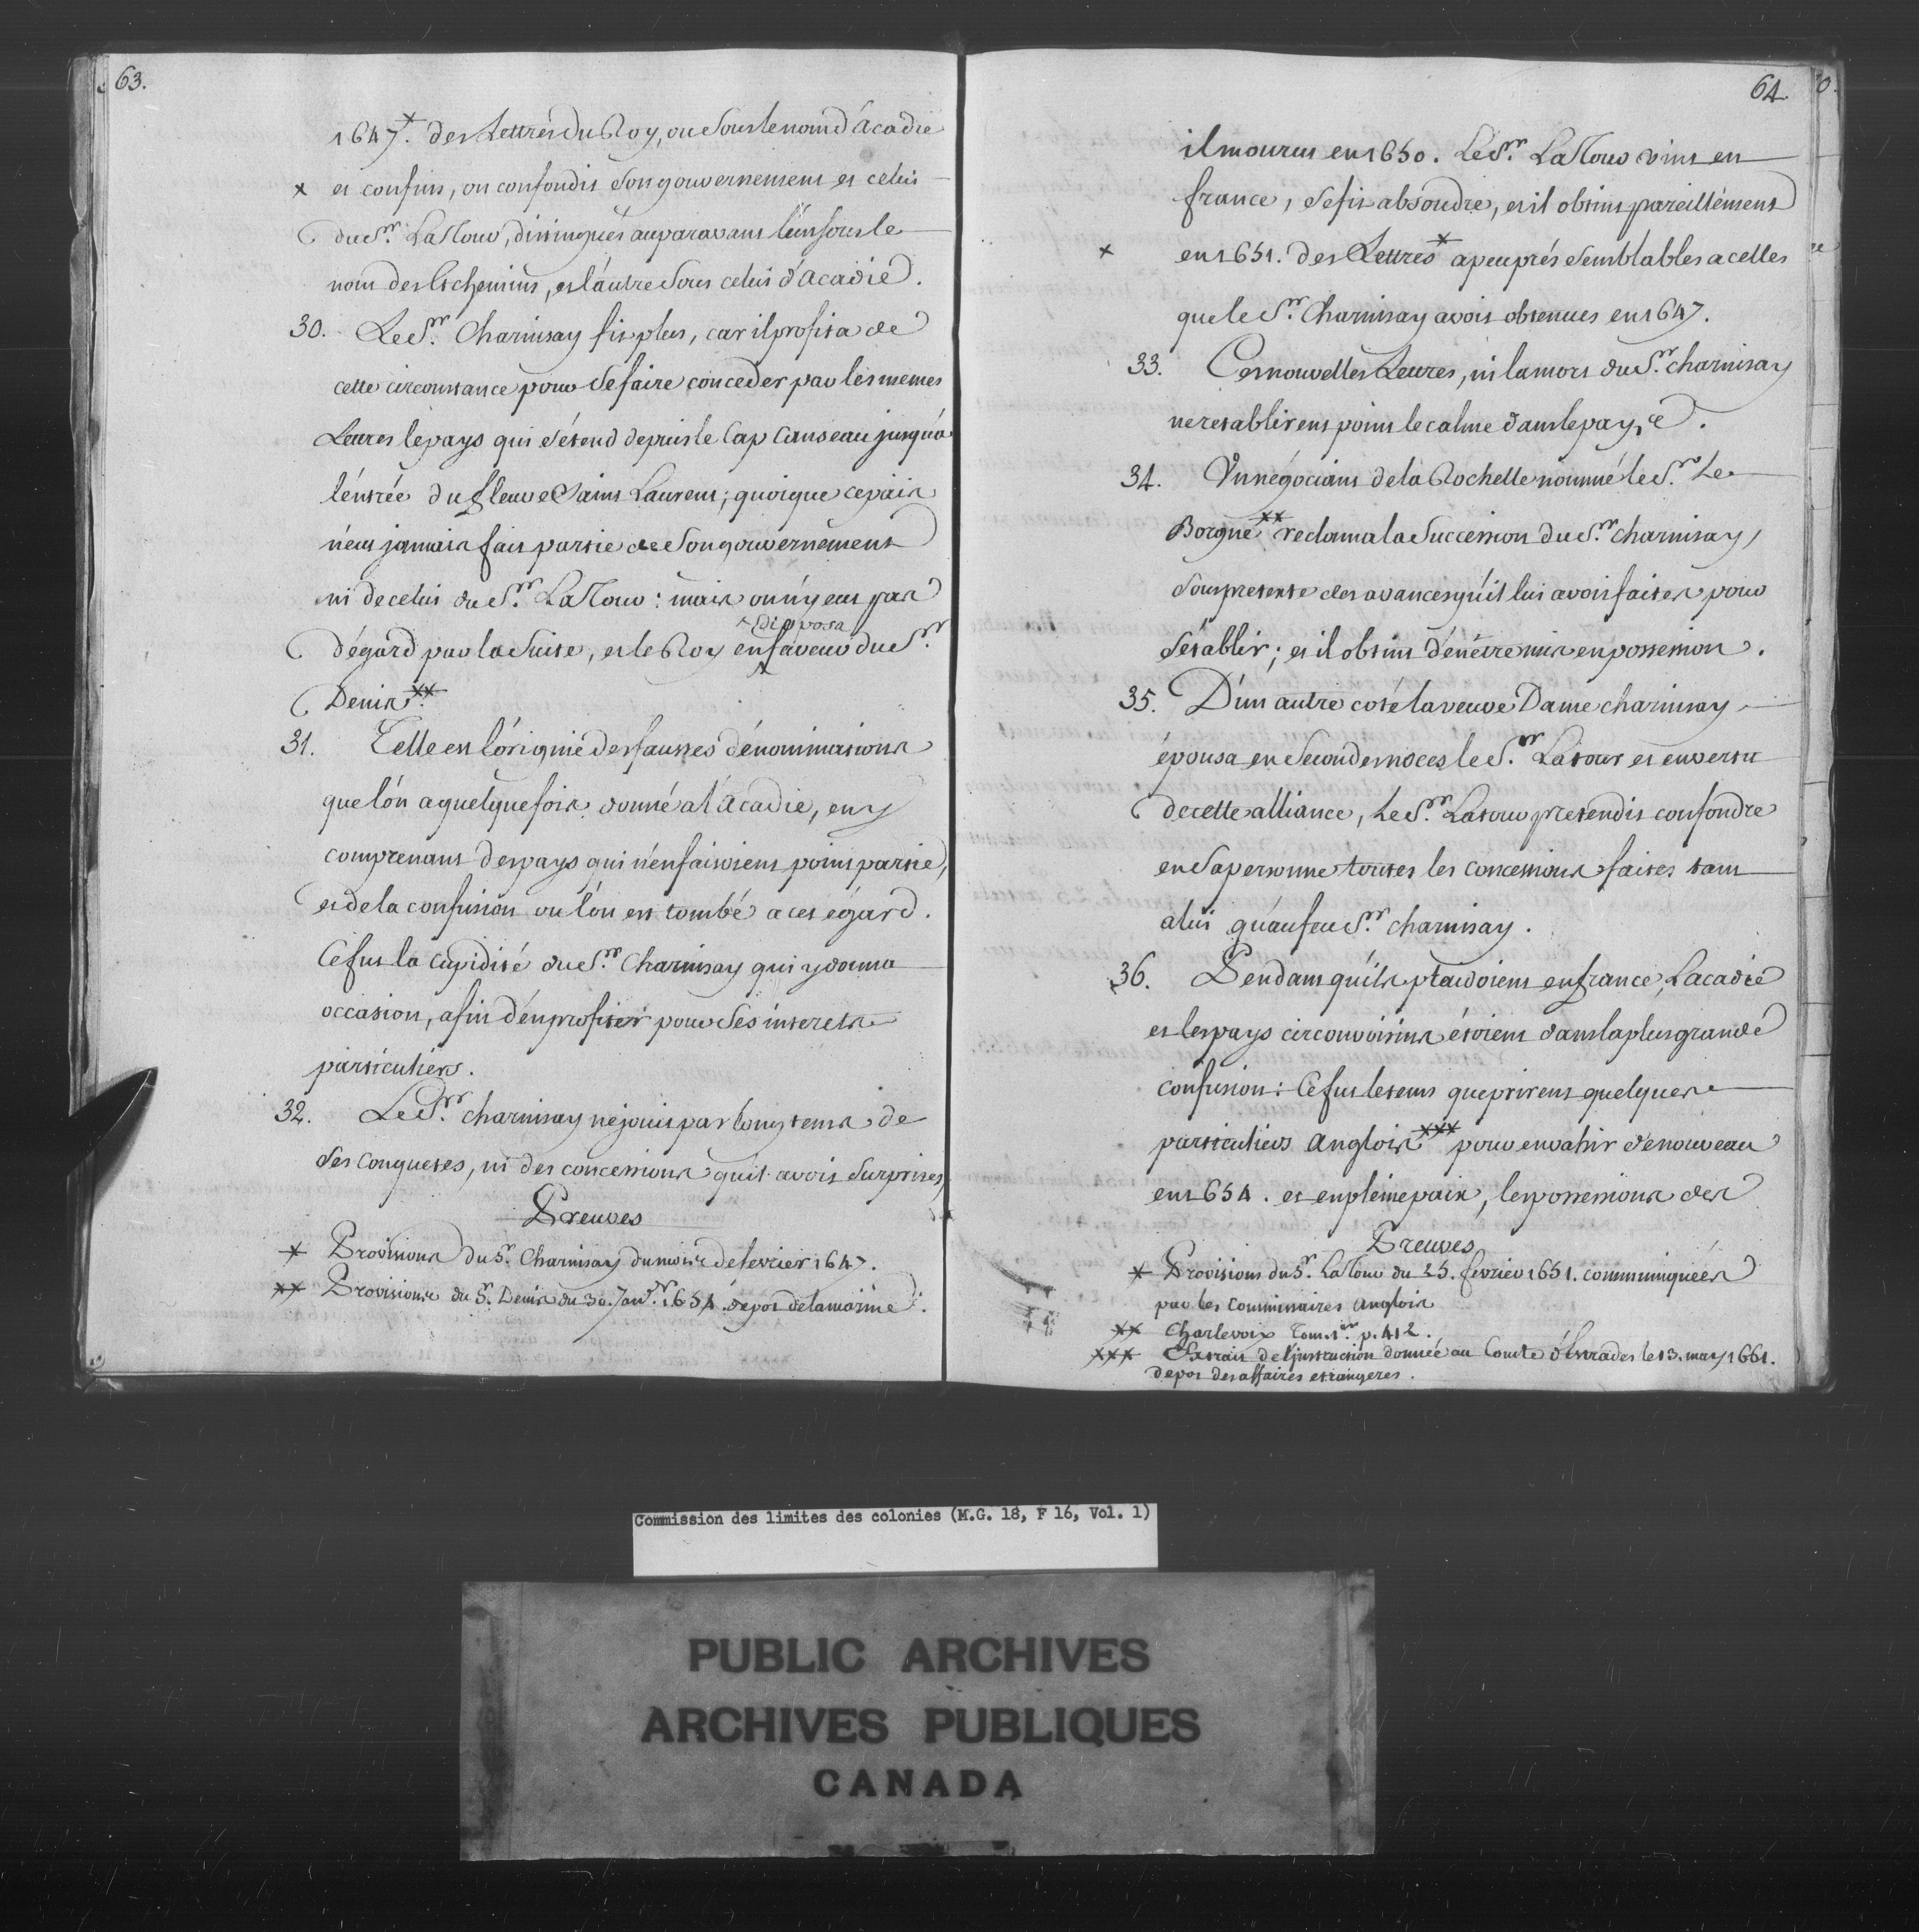 63.
1647.* des Lettres du Roy, ou sous le nom d'Acadie
x et confins, on confondit son gouvernement et celui
du Sr. La Tour, distingués auparavant l'un sous le
nom des Etchemins, et l'autre sous celui d'Acadie.
30. Le Sr. Charnisay fit plus, car il profita de
cette circonstance pour se faire conceder par les memes
Lettres le pays qui s'étend depuis le Cap Canseau jusqu'à
l'entrée du fleuve Saint Laurent; quoique ce païs
n'eut jamais fait partie de son gouvernement
ni de celui du Sr. La Tour: mais on n'y eut pas
d'égard par la suite, et le Roy ^disposa en faveur du Sr.
Denis**.
31. Telle est l'origine des fausses dénominations
que l'on a quelquefois donné a l'Acadie, en y
comprenant des pays qui n'en faisoient point partie,
et de la confusion ou l'on est tombé a cet égard.
Ce fut la cupidité du Sr. Charnisay qui y donna
occasion, afin d'en profiter pour ses interets
particuliers.
32. Le Sr. charnisay ne jouit pas longtems de
ses conquetes, ni des concessions qu'il avoit surprises,
Preuves
* Provisions du Sr. Charnisay du mois de fevrier 1647.
** Provisions du Sr. Denis du 30. Janvr. 1654. dépot de la marine.
64.
il mourut en 1650. Le Sr. La Tour vint en
france, se fit absoudre, et il obtint pareillement
x en 1651. des Lettres* a peu prés semblables a celles
que le Sr. Charnisay avoit obtenues en 1647.
33. Ces nouvelles Lettres, ni la mort du Sr. charnisay
ne retablirent point le calme dans le pays.
34. Un négociant de la Rochelle nommé le Sr. Le
Borgne** reclama la succession du Sr. charnisay,
sous pretexte des avances qu'il lui avoit faites pour
s'établir; et il obtint d'en être mis en possession.
35. D'un autre coté la veuve Dame charnisay
épousa en secondes noces le Sr. Latour et en vertu
de cette alliance, Le Sr. Latour pretendit confondre
en sa personne toutes les concessions faites tant
a lui qu'au feu Sr. charnisay.
36. Pendant qu'ils plaidoient en france, L'acadie
et les pays circonvoisins étoient dans la plus grande
confusion: Ce fut le tems que prirent quelques
particuliers Anglois*** pour envahir de nouveau
en 1654. et en pleine paix, les possessions des
Preuves
* Provisions du Sr. La Tour du 25. fevrier 1651. communiquées
par les Commissaires Anglois
** Charlevoix Tom. 1er. p. 412.
*** Extrait de l'instruction donnée au Comte d'Estrades le 13. may 1661.
depot des affaires etrangeres.
Commission des limites des colonies (M.G. 18, F 16, Vol. 1)
PUBLIC ARCHIVES
ARCHIVES PUBLIQUES
CANADA